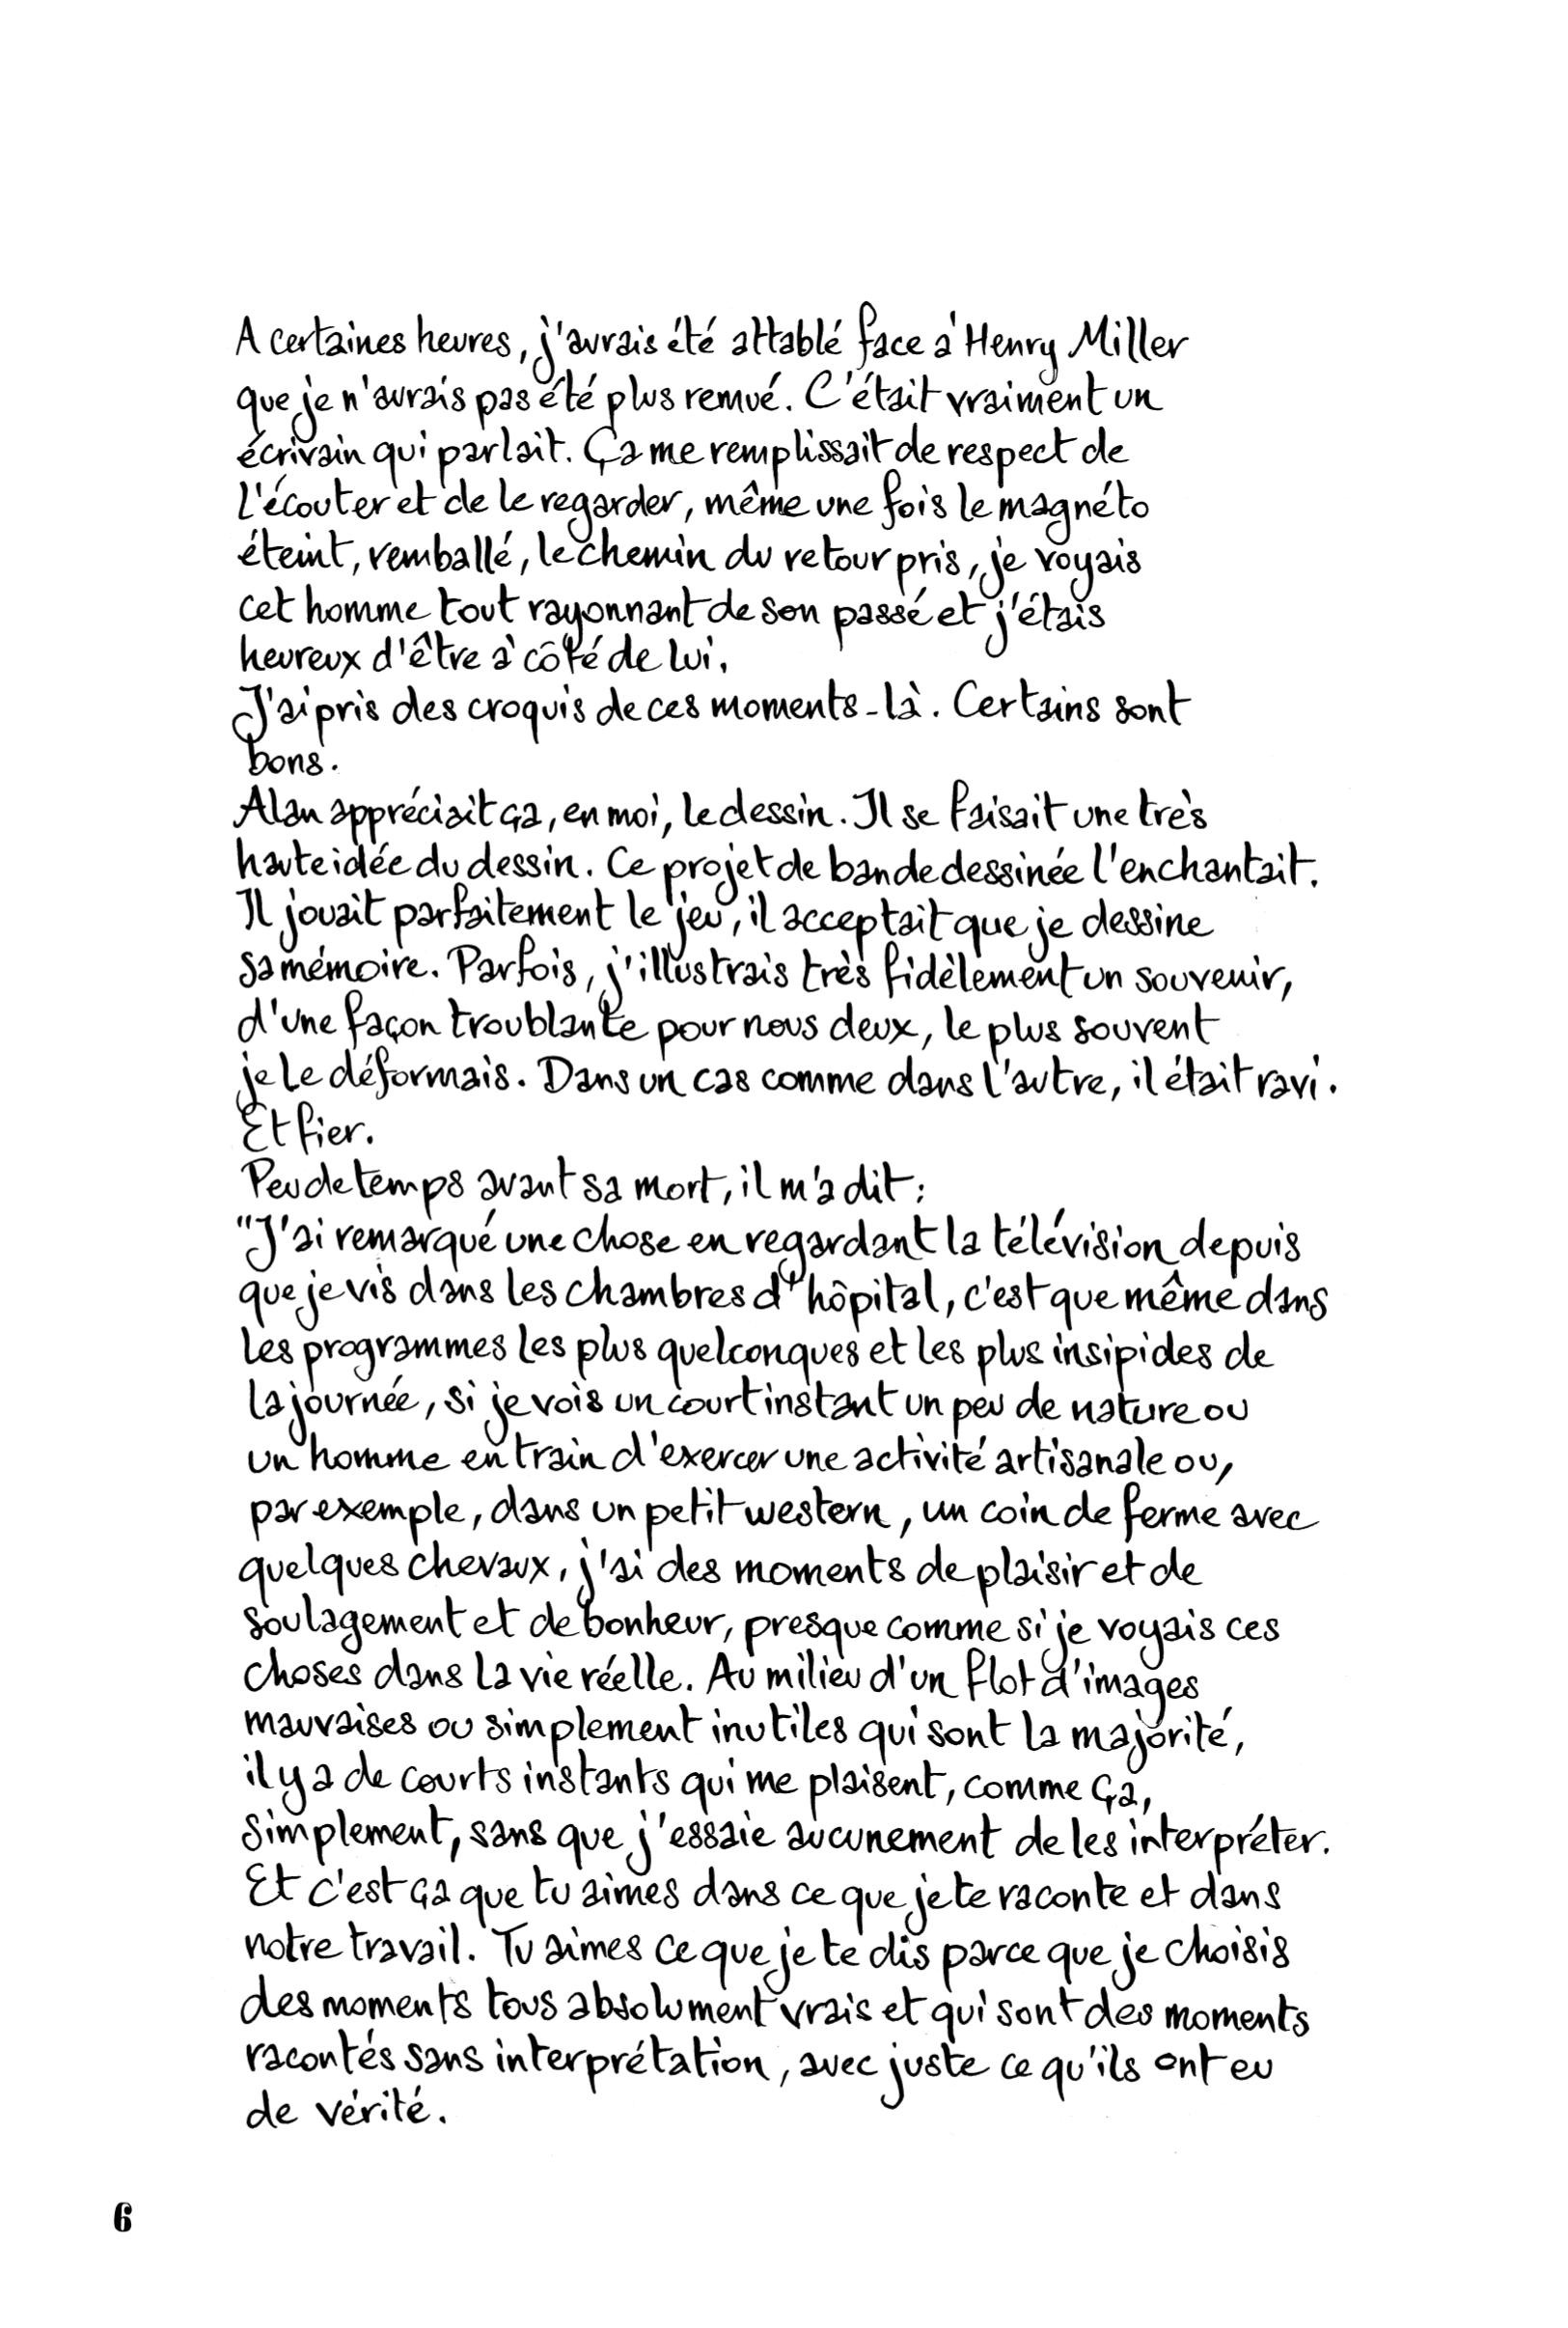 A certaines heures, j'aurais été attablé face à Henry Miller
que je n'aurais pas été plus remué. C'était vraiment un
écrivain qui parlait. Ça me remplissait de respect de
l'écouter et de le regarder, même une fois le magnéto
éteint, remballé, le chemin du retour pris, je voyais
cet homme tout rayonnant de son passé et j'étais
heureux d'être à côté de lui.
J'ai pris des croquis de ces moments-là. Certains sont
bons.
Alan appréciait ça, en moi, le dessin. Il se faisait une très
haute idée du dessin. Ce projet de bande dessinée l'enchantait.
Il jouait parfaitement le jeu, il acceptait que je dessine
sa mémoire. Parfois, j'illustrais très fidèlement un souvenir,
d'une façon troublante pour nous deux, le plus souvent
je le déformais. Dans un cas comme dans l'autre, il était ravi.
Et fier.
Peu de temps avant sa mort, il m'a dit :
"J'ai remarqué une chose en regardant la télévision depuis
que je vis dans les chambres d'hôpital, c'est que même dans
les programmes les plus quelconques et les plus insipides de
la journée, si je vois un court instant un peu de nature ou
un homme en train d'exercer une activité artisanale ou,
par exemple, dans un petit western, un coin de ferme avec
quelques chevaux, j'ai des moments de plaisir et de
soulagement et de bonheur, presque comme si je voyais ces
choses dans la vie réelle. Au milieu d'un flot d'images
mauvaises ou simplement inutiles qui sont la majorité,
il y a de courts instants qui me plaisent, comme ça,
simplement, sans que j'essaie aucunement de les interpréter.
Et c'est ça que tu aimes dans ce que je te raconte et dans
notre travail. Tu aimes ce que je te dis parce que je choisis
des moments tous absolument vrais et qui sont des moments
racontés sans interprétation, avec juste ce qu'ils ont eu
de vérité.
6